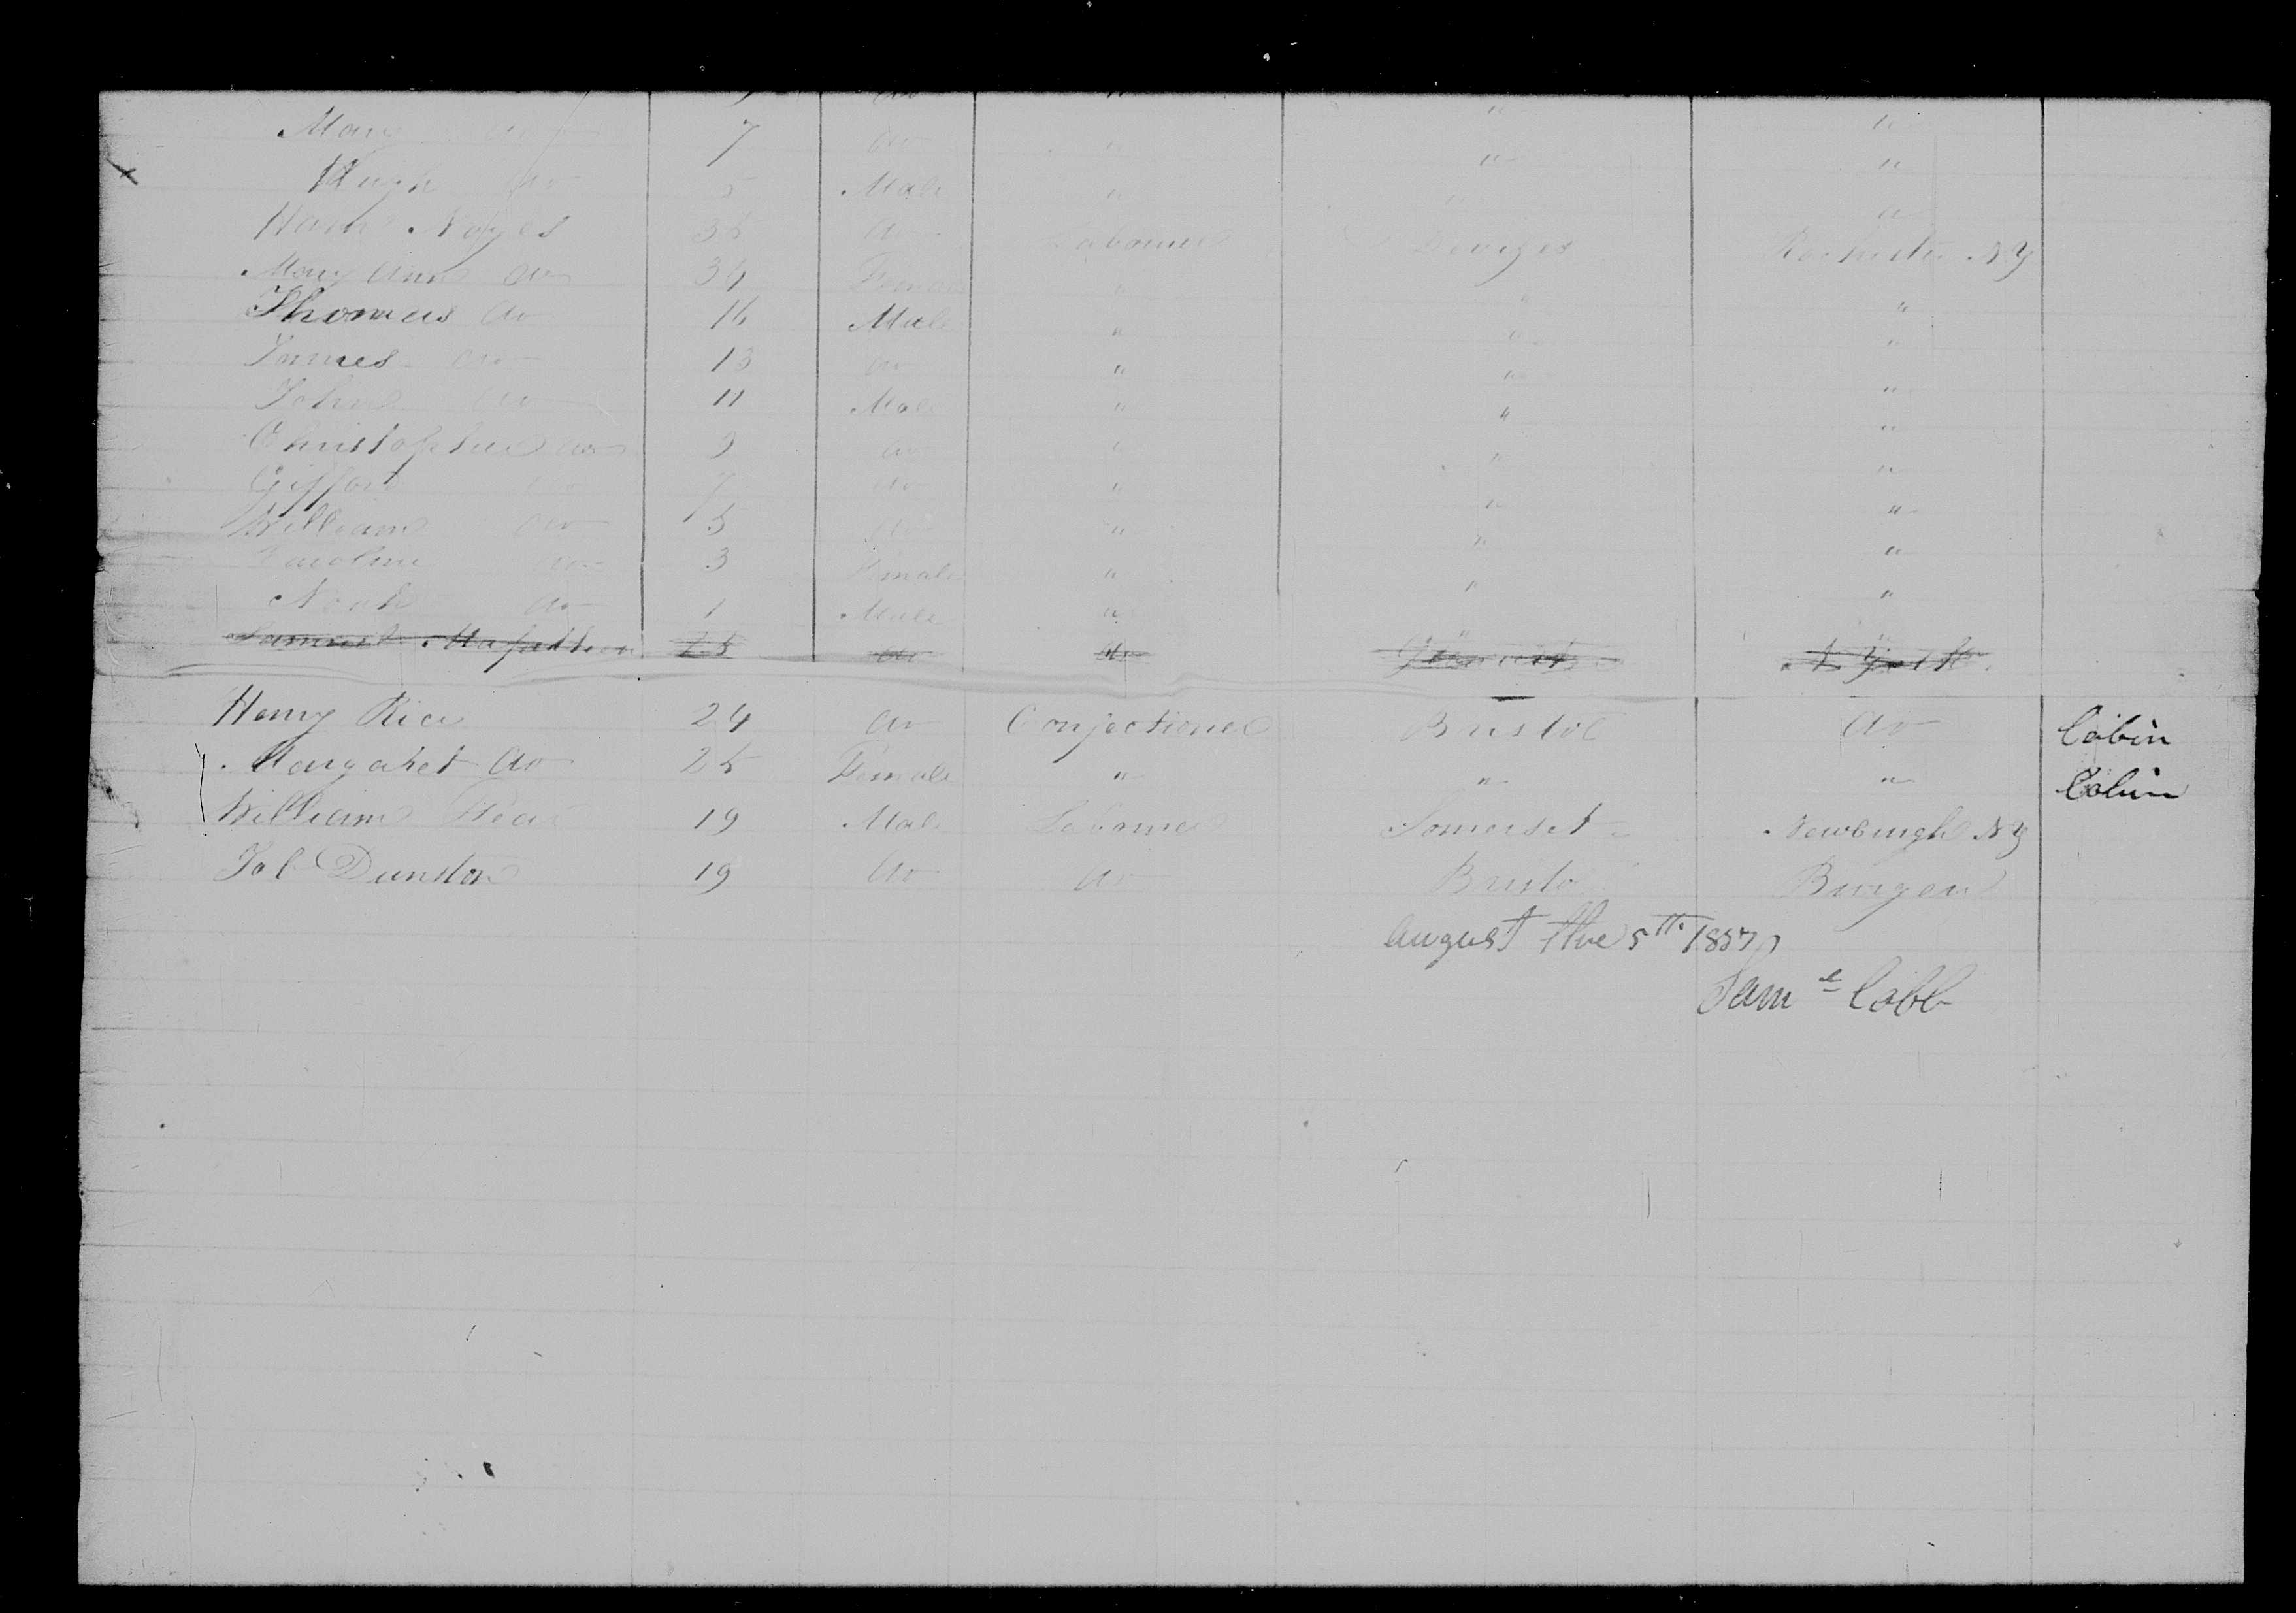 Mary do 7 do " " "
Hugh do 5 Male " " "
Noyes 35 do Labourer Devizes Rochester NY
Mary Ann do 34 Female " " "
Thomas do 16 Male " " "
James do 13 do " " "
John do 11 Male " " "
Christopher do 9 do " " "
Gifford do 7 do " " "
William do 5 do " " "
Caroline do 3 Female " " "
Noah do 1 Male " " "
Samuel 25 do do N York
Henry Rice 24 do Confectioner Bristol do Cabin
Margaret do 25 Female " " " Cabin
William 19 Male Labourer Somerset Newburgh NY
Job Dunston 19 do do Bristol Burgen
August the 5th 1857
Saml Cobb